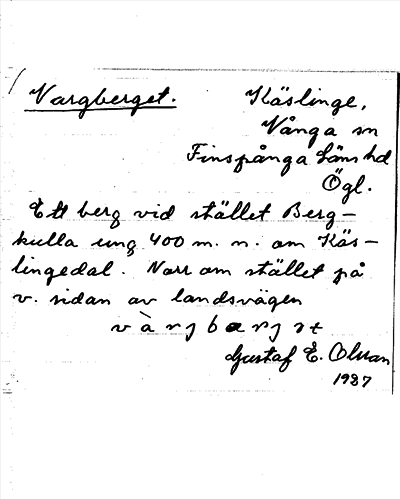 Vargberget. Käslinge,
Vånga sn
Finspånga läns hd
Ögl.
Ett berg vid stället Berg-
kulla ung 400 m. n. om Käs-
lingedal. Norr om stället på
v. sidan av landsvägen
Gustaf E. Olsson
1927